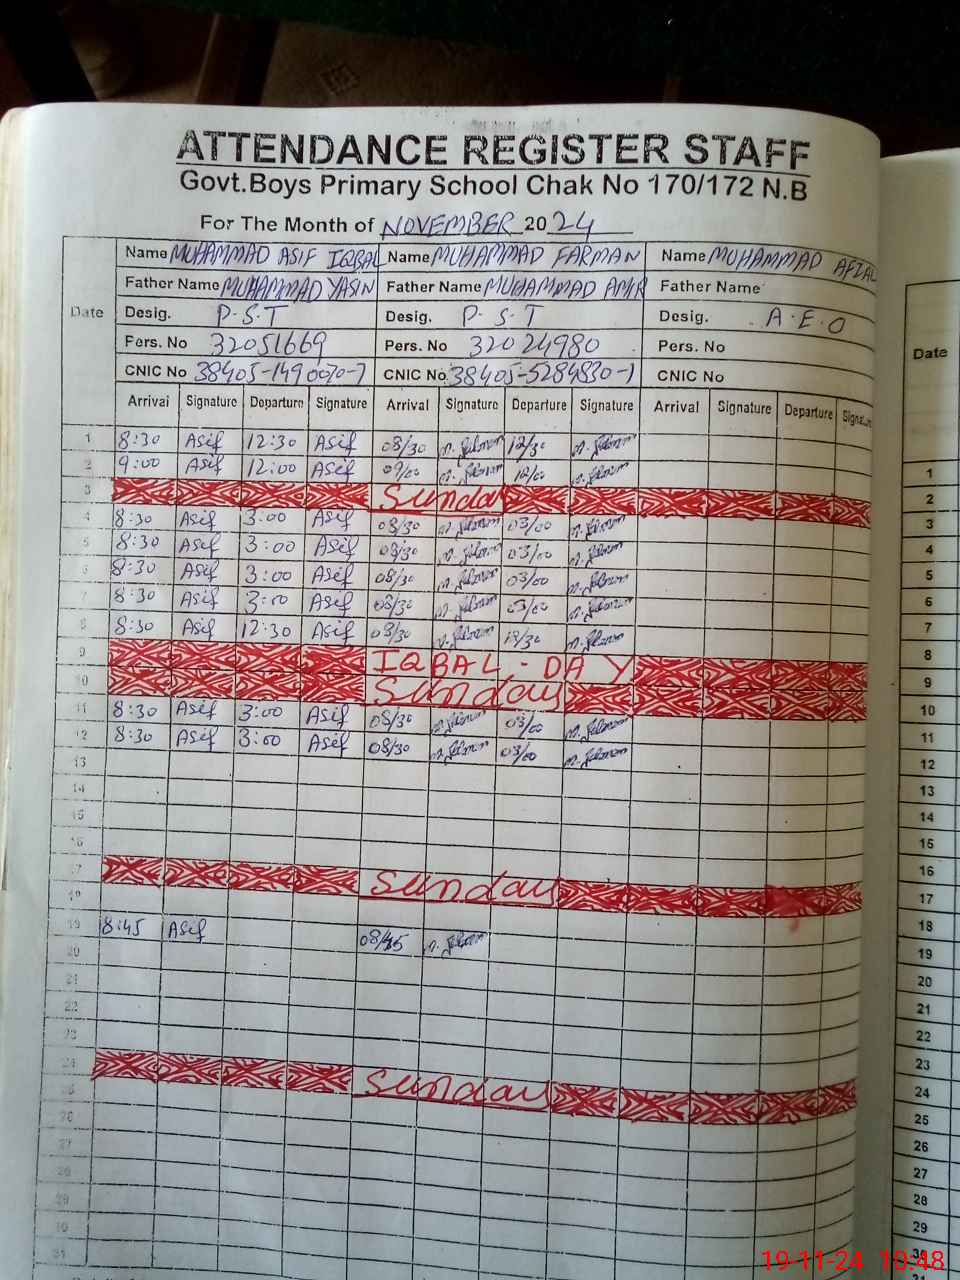 ATTENDANCE REGISTER STAFF
Govt.Boys Primary School Chak No 170/172 N.B
For The Month of NOVEMBER 2024
Date
Name MUHAMMAD ASIF IQBAL Name MUHAMMAD FARMAN Name MUHAMMAD AFZAL
Father Name MUHAMMAD YASIN Father Name MUHAMMAD AMIR Father Name
Desig. P.S.T Desig. P.S.T Desig. A.E.O
Pers. No 32051669 Pers. No 32024980 Pers. No
CNIC No 38405-1490070-7 CNIC No 38405-5284830-1 CNIC No
Arrival Signature Departure Signature Arrival Signature Departure Signature Arrival Signature Departure Signature
1 8:30 Asif 12:30 Asif 08/30 12/30
2 9:00 Asif 12:00 Asif 09/00 12/00
3 Sunday
4 8:30 Asif 3:00 Asif 08/30 03/00
5 8:30 Asif 3:00 Asif 08/30 03/00
6 8:30 Asif 3:00 Asif 08/30 03/00
7 8:30 Asif 3:00 Asif 08/30 03/00
8 8:30 Asif 12:30 Asif 08/30 12/30
9 IQBAL-DAY
10 Sunday
11 8:30 Asif 3:00 Asif 08/30 03/00
12 8:30 Asif 3:00 Asif 08/30 03/00
13
14
15
16
17 Sunday
18
19 8:45 Asif 08/45
20
21
22
23
24 Sunday
25
26
27
28
29
30
31
Date
1
2
3
4
5
6
7
8
9
10
11
12
13
14
15
16
17
18
19
20
21
22
23
24
25
26
27
28
29
30
31
19-11-24 10:48